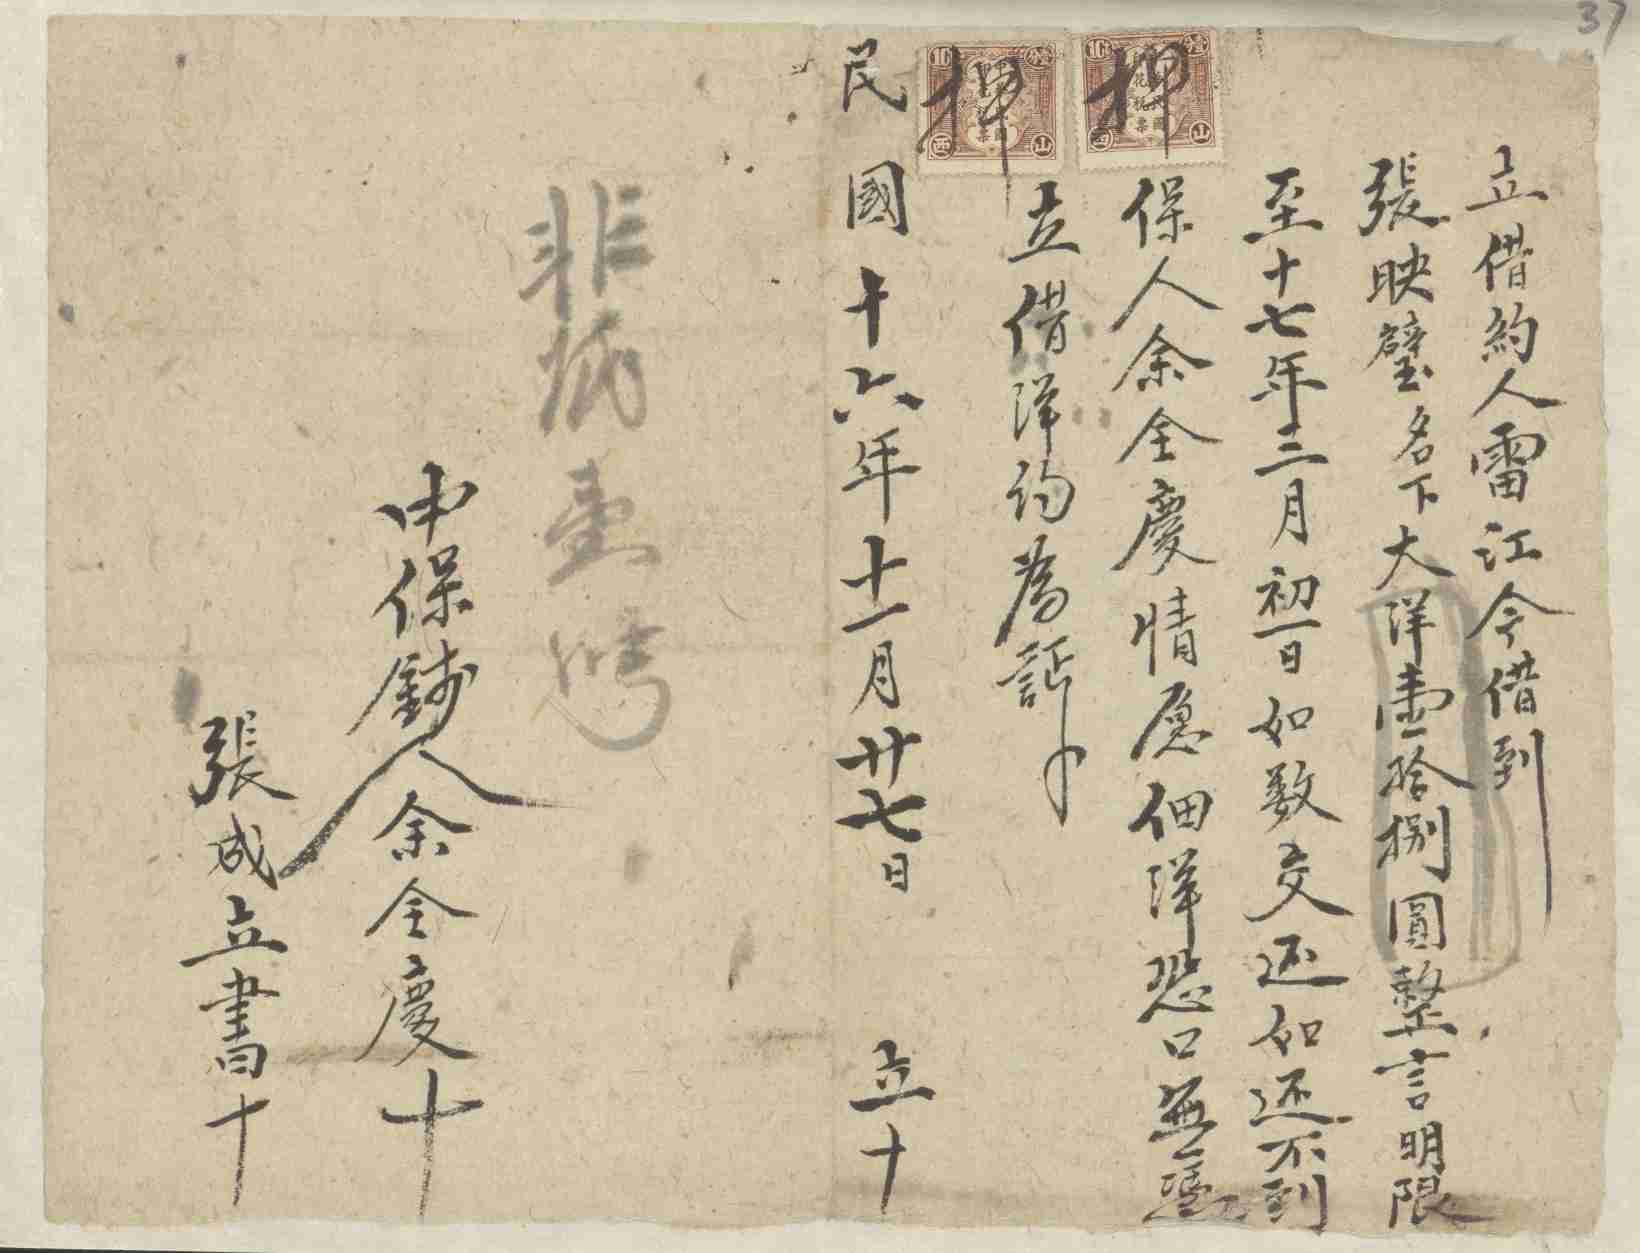 37
立借約人雷江今借到
張映璧名下大洋壹拾捌圓整言明限
至十七年二月初一日如数交还如还不到
保人余全慶情愿佃洋恐口無憑
立借洋约為証
民國十六年十一月廿七日 立十
中保錢人余全慶十
張成立書十
押
押
山西
山西